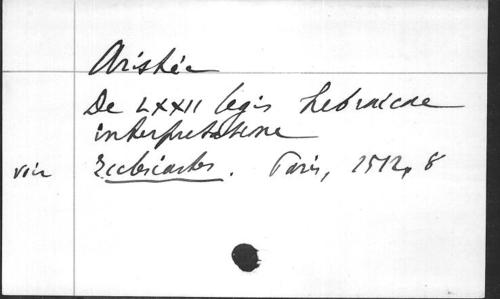 Aristée
De LXXII legis hebraicae
interpretatione
voir Ecclesiastes. Paris, 1512, 8